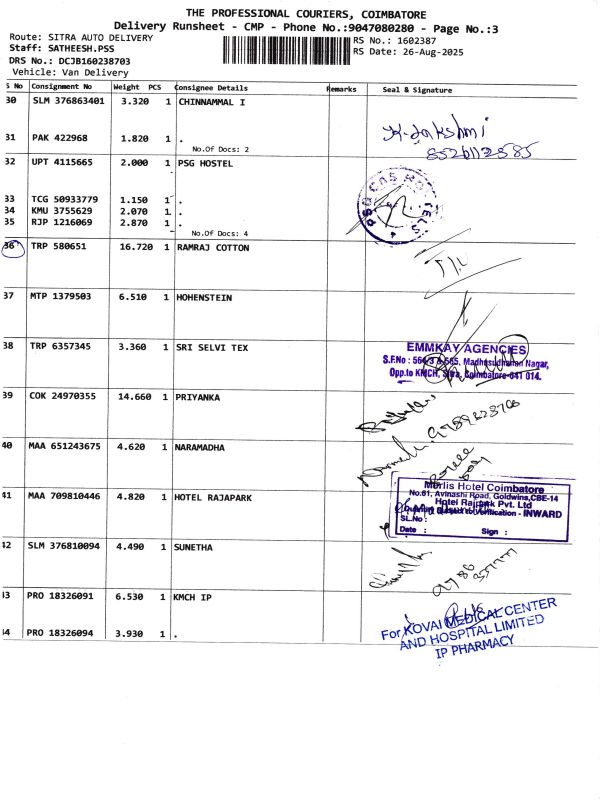 THE PROFESSIONAL COURIERS, COIMBATORE
Delivery Runsheet - CMP - Phone No.:9047080280 - Page No.:3
Route: SITRA AUTO DELIVERY
RS No.: 1602387
Staff: SATHEESH.PSS
RS Date: 26-Aug-2025
DRS No.: DCJB160238703
Vehicle: Van Delivery
S No Consignment No Weight PCS Consignee Details Remarks Seal & Signature
30 SLM 376863401 3.320 1 CHINNAMMAL I
31 PAK 422968 1.820 1 .
No.Of Docs: 2
K-Jakshmi
8526112585
32 UPT 4115665 2.000 1 PSG HOSTEL
33 TCG 50933779 1.150 1 .
34 KMU 3755629 2.070 1 .
35 RJP 1216069 2.870 1 .
No.Of Docs: 4
36 TRP 580651 16.720 1 RAMRAJ COTTON
37 MTP 1379503 6.510 1 HOHENSTEIN
38 TRP 6357345 3.360 1 SRI SELVI TEX
EMMKAY AGENCIES
S.F.No : 564/3 & 565, Madhusudhanan Nagar,
Opp.to KMCH, Sitra, Coimbatore-641 014.
39 COK 24970355 14.660 1 PRIYANKA
40 MAA 651243675 4.620 1 NARAMADHA
41 MAA 709810446 4.820 1 HOTEL RAJAPARK
Merlis Hotel Coimbatore
No.61, Avinashi Road, Goldwins,CBE-14
Hotel Rajpark Pvt. Ltd
Verification - INWARD
SL.No :
Date : Sign :
42 SLM 376810094 4.490 1 SUNETHA
43 PRO 18326091 6.530 1 KMCH IP
44 PRO 18326094 3.930 1 .
For KOVAI MEDICAL CENTER
AND HOSPITAL LIMITED
IP PHARMACY